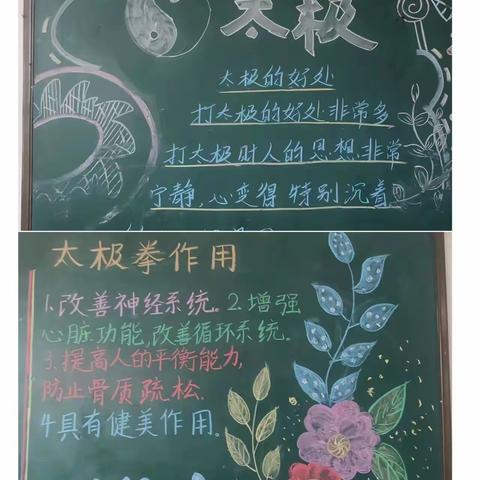 太极
太极的好处
打太极的好处非常多
打太极时人的思想非常
宁静,心变得特别沉着
太极拳作用
1.改善神经系统。2.增强
心脏功能,改善循环系统。
3.提高人的平衡能力,
防止骨质疏松.
4具有健美作用。